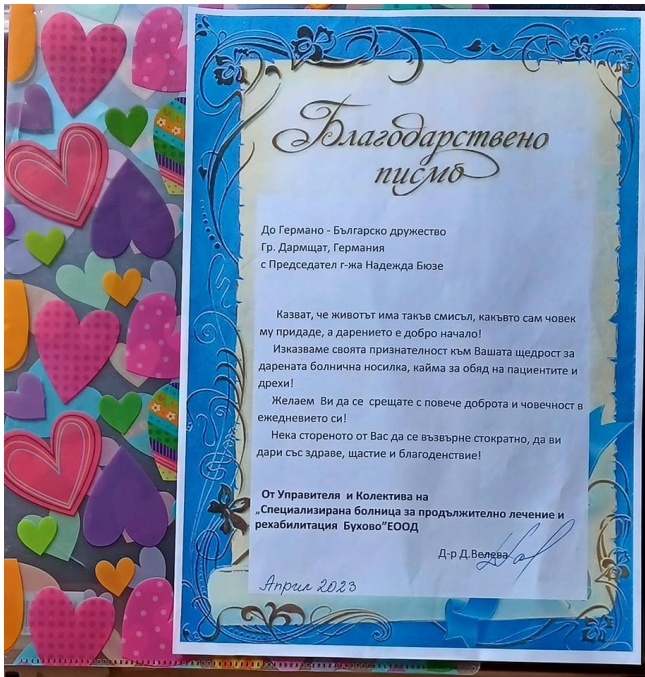 Благодарствено
писмо
До Германо - Българско дружество
Гр. Дармщат, Германия
с Председател г-жа Надежда Бюзе
Казват, че животът има такъв смисъл, какъвто сам човек
му придаде, а дарението е добро начало!
Изказваме своята признателност към Вашата щедрост за
дарената болнична носилка, кайма за обяд на пациентите и
дрехи!
Желаем Ви да се срещате с повече доброта и човечност в
ежедневието си!
Нека стореното от Вас да се възвърне стократно, да ви
дари със здраве, щастие и благоденствие!
От Управителя и Колектива на
„Специализирана болница за продължително лечение и
рехабилитация Бухово"ЕООД
Д-р Д.Велева
Април 2023